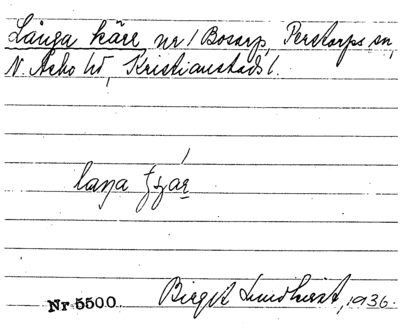 Långa käre, nr 1 Bosarp, Perstorps sn,
N. Åsbo hd, Kristianstads l.
laŋa
Nr 5500 Birgit Lundkvist, 1936.